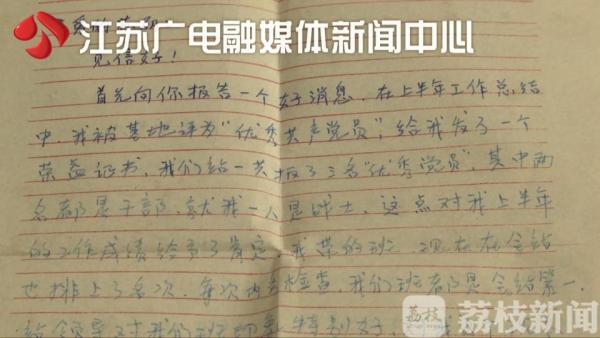 江苏广电融媒体新闻中心
见信好！
首先向你报告一个好消息，在上半年工作总结
中，我被基地评为“优秀共产党员”，给我发了一个
荣益证书，我们站一共报了三名“优秀党员”，其中两
名都是干部，就我一人是战士，这点对我上半年
的工作成绩给予了肯定，我带的班 现在在全站
也排上了名次，每次内务检查，我们班都是全站第一，
站领导对我们班 特别好，
荔枝
荔枝新闻